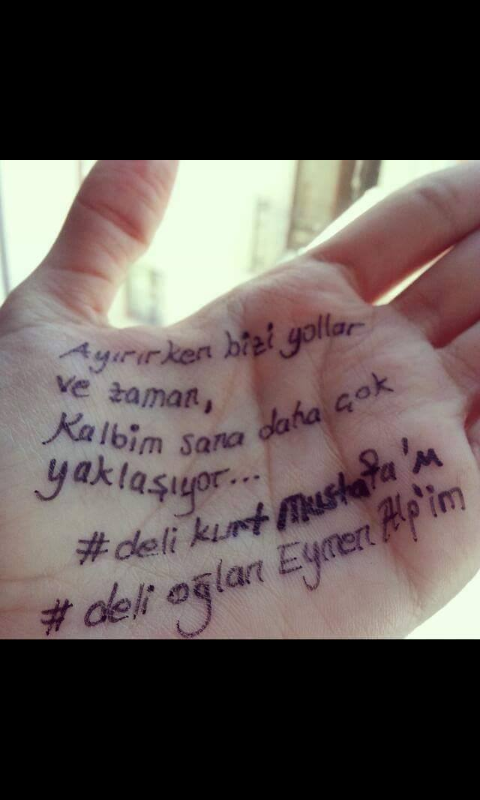 Ayırırken bizi yollar
ve zaman,
Kalbim sana daha çok
yaklaşıyor...
#deli kurt Mustafa'M
# deli oğlan Eymen Alp'im